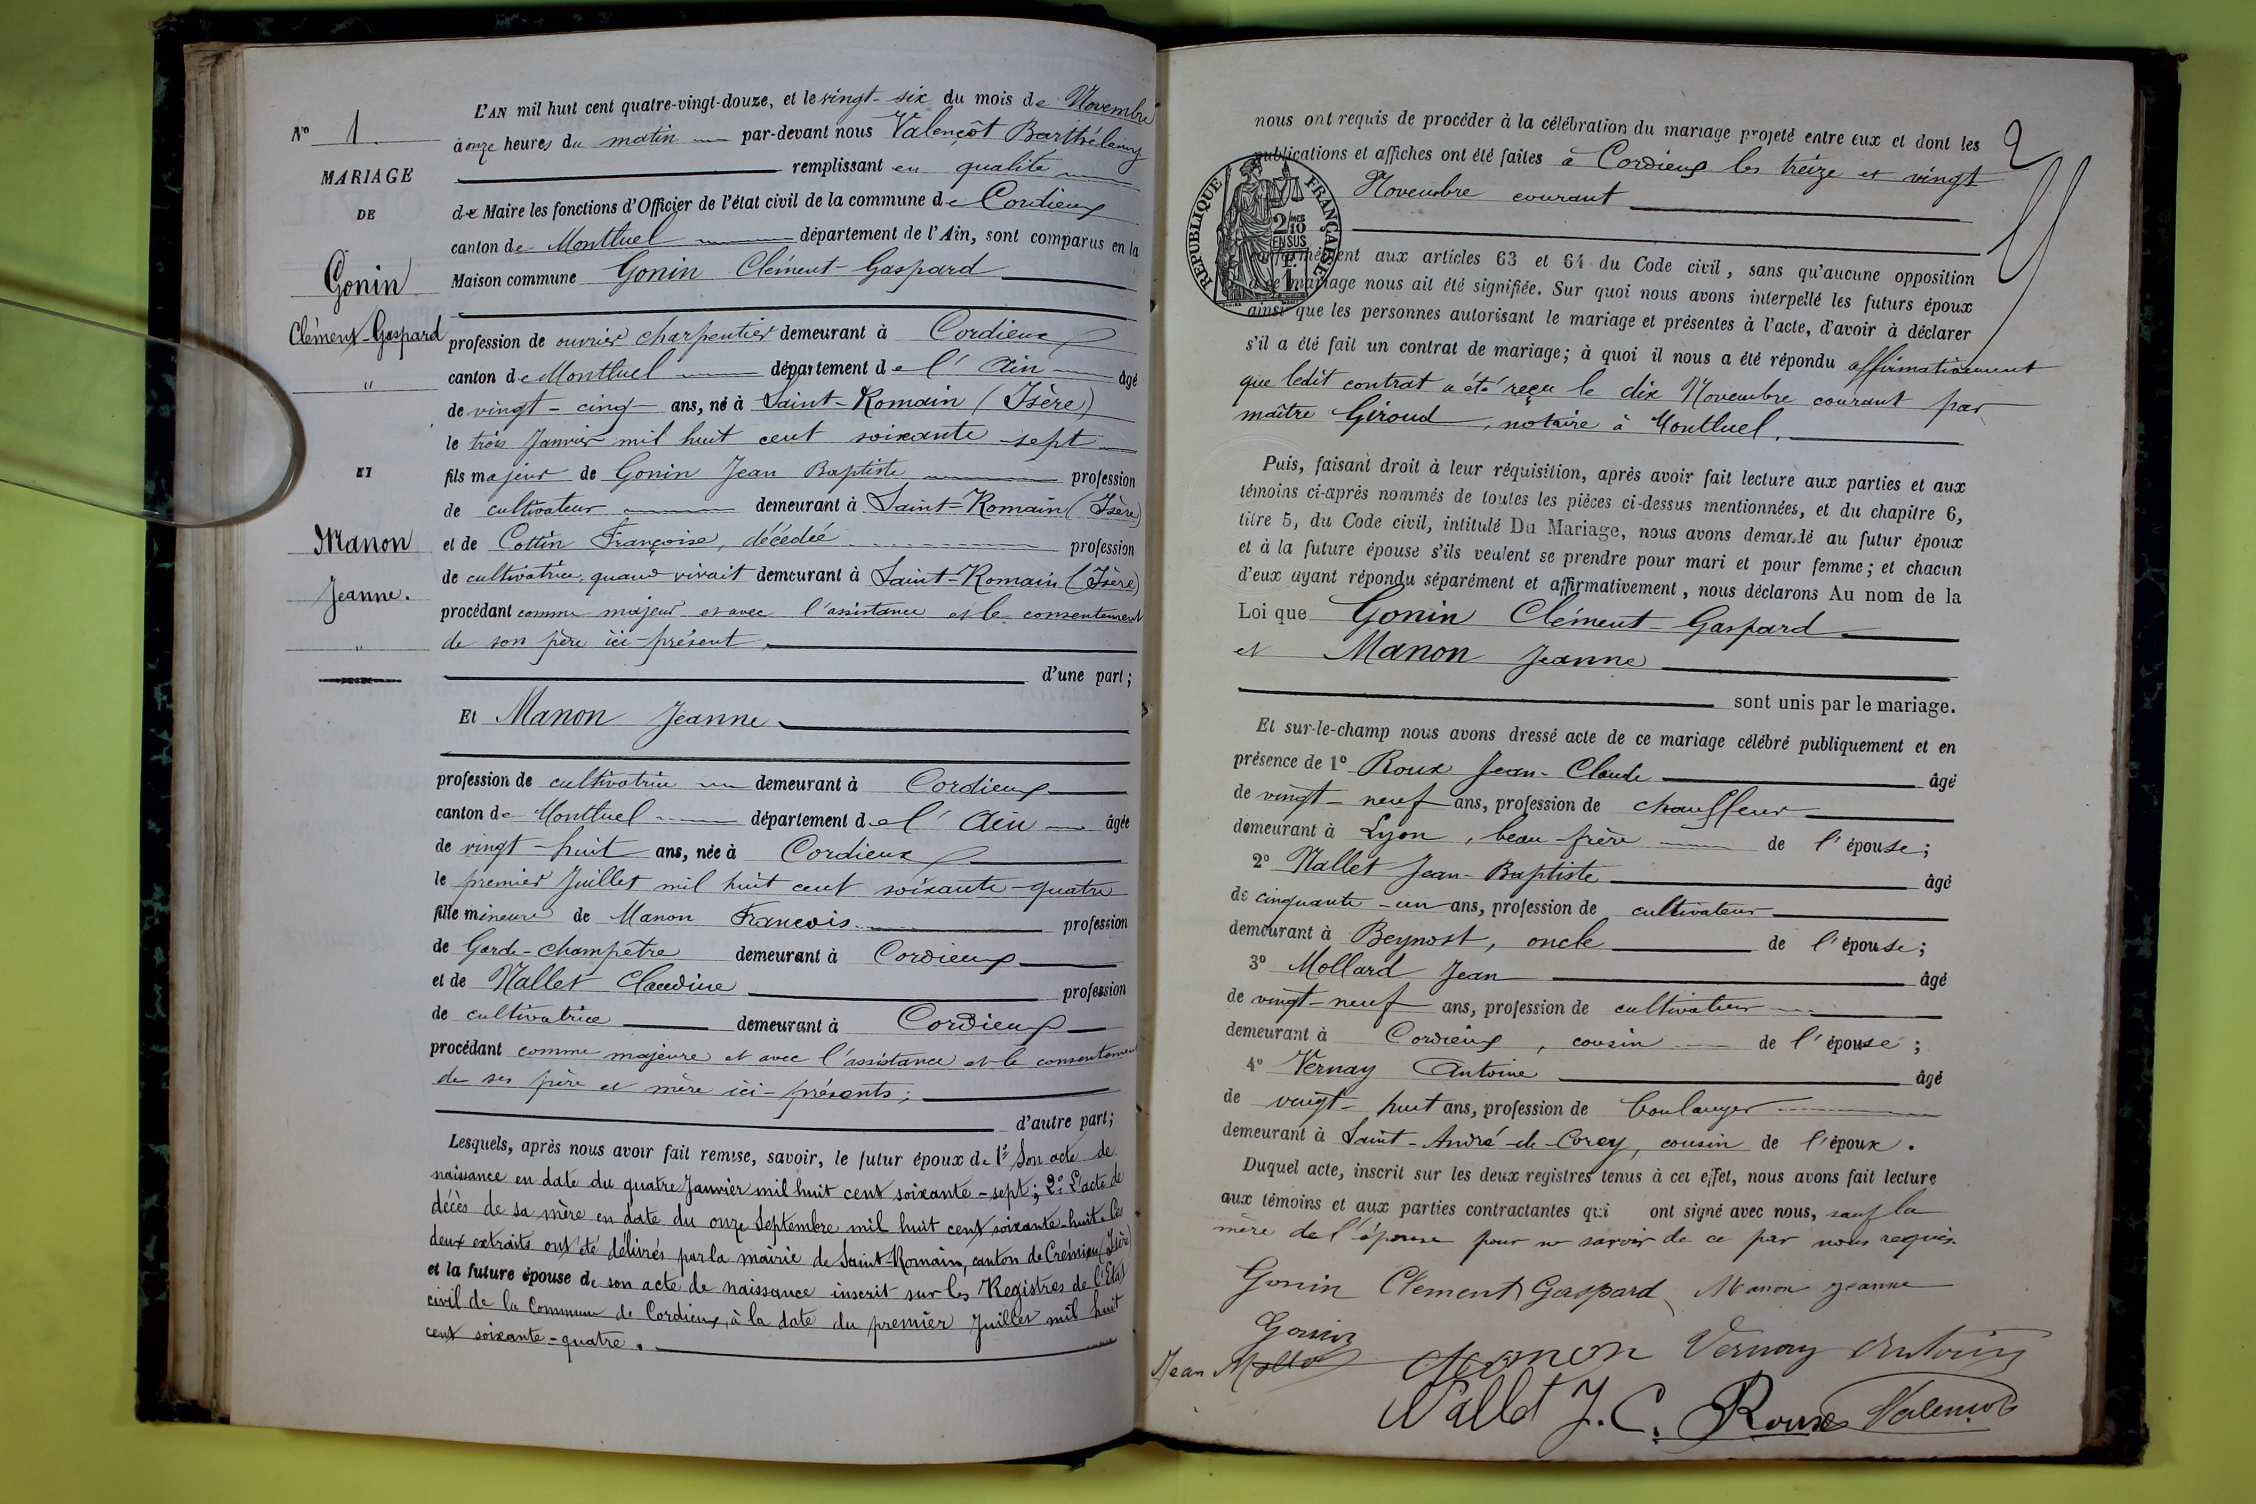 L'AN mil huit cent quatre-vingt-douze, et le vingt-six du mois de Novembre
N° 1
à onze heures du matin par-devant nous Valençôt Barthélemy
remplissant en qualité
MARIAGE
DE
de Maire les fonctions d'Officier de l'état civil de la commune de Cordieux
canton de Montluel département de l'Ain, sont comparus en la
Gonin
Maison commune Gonin Clément-Gaspard
Clément-Gaspard
profession de ouvrier charpentier demeurant à Cordieux
canton de Montluel département de l'Ain âgé
"
de vingt-cinq ans, né à Saint-Romain (Isère)
le trois Janvier mil huit cent soixante-sept
ET
fils majeur de Gonin Jean Baptiste profession
de cultivateur demeurant à Saint-Romain (Isère)
Manon
et de Cottin Françoise, décédée profession
Jeanne.
de cultivatrice quand vivait demeurant à Saint-Romain (Isère)
procédant comme majeur et avec l'assistance et le consentement
"
de son père ici-présent
d'une part;
Et Manon Jeanne
profession de cultivatrice demeurant à Cordieux
canton de Montluel département de l'Ain âgée
de vingt-huit ans, née à Cordieux
le premier Juillet mil huit cent soixante-quatre
fille mineure de Manon Francois profession
de Garde-champêtre demeurant à Cordieux
et de Nallet Claudine profession
de cultivatrice demeurant à Cordieux
procédant comme majeure et avec l'assistance et le consentement
de ses père et mère ici-présents;
d'autre part;
Lesquels, après nous avoir fait remise, savoir, le futur époux de 1° Son acte de
naissance en date du quatre Janvier mil huit cent soixante-sept; 2° L'acte de
décès de sa mère en date du onze Septembre mil huit cent soixante-huit. les
deux extraits ont été délivrés par la mairie de Saint-Romain, canton de Crémieu (Isère)
et la future épouse de son acte de naissance inscrit sur les Registres de l'Etat
civil de la Commune de Cordieux, à la date du premier Juillet mil huit
cent soixante-quatre.
2
nous ont requis de procéder à la célébration du mariage projeté entre eux et dont les
publications et affiches ont été faites à Cordieux les treize et vingt
Novembre courant
RÉPUBLIQUE FRANÇAISE
2/10 EN SUS
F. 1
conformément aux articles 63 et 64 du Code civil, sans qu'aucune opposition
à ce mariage nous ait été signifiée. Sur quoi nous avons interpellé les futurs époux
ainsi que les personnes autorisant le mariage et présentes à l'acte, d'avoir à déclarer
s'il a été fait un contrat de mariage; à quoi il nous a été répondu affirmativement
que ledit contrat a été reçu le dix Novembre courant par
maître Giroud, notaire à Montluel.
Puis, faisant droit à leur réquisition, après avoir fait lecture aux parties et aux
témoins ci-après nommés de toutes les pièces ci-dessus mentionnées, et du chapitre 6,
titre 5, du Code civil, intitulé Du Mariage, nous avons demandé au futur époux
et à la future épouse s'ils veulent se prendre pour mari et pour femme; et chacun
d'eux ayant répondu séparément et affirmativement, nous déclarons Au nom de la
Loi que Gonin Clément-Gaspard
et Manon Jeanne
sont unis par le mariage.
Et sur-le-champ nous avons dressé acte de ce mariage célébré publiquement et en
présence de 1° Roux Jean-Claude âgé
de vingt-neuf ans, profession de chauffeur
demeurant à Lyon, beau-frère de l'épouse;
2° Nallet Jean-Baptiste âgé
de cinquante-un ans, profession de cultivateur
demeurant à Beynost, oncle de l'épouse;
3° Mollard Jean âgé
de vingt-neuf ans, profession de cultivateur
demeurant à Cordieux, cousin de l'épouse;
4° Vernay Antoine âgé
de vingt-huit ans, profession de boulanger
demeurant à Saint-André-de-Corcy, cousin de l'époux.
Duquel acte, inscrit sur les deux registres tenus à cet effet, nous avons fait lecture
aux témoins et aux parties contractantes qui ont signé avec nous, sauf la
mère de l'épouse pour ne savoir de ce par nous requis.
Gonin Clement Gaspard Manon Jeanne
Gonin
Jean Mollard Manon Vernay Antoine
Nallet J. C. Roux Valençot